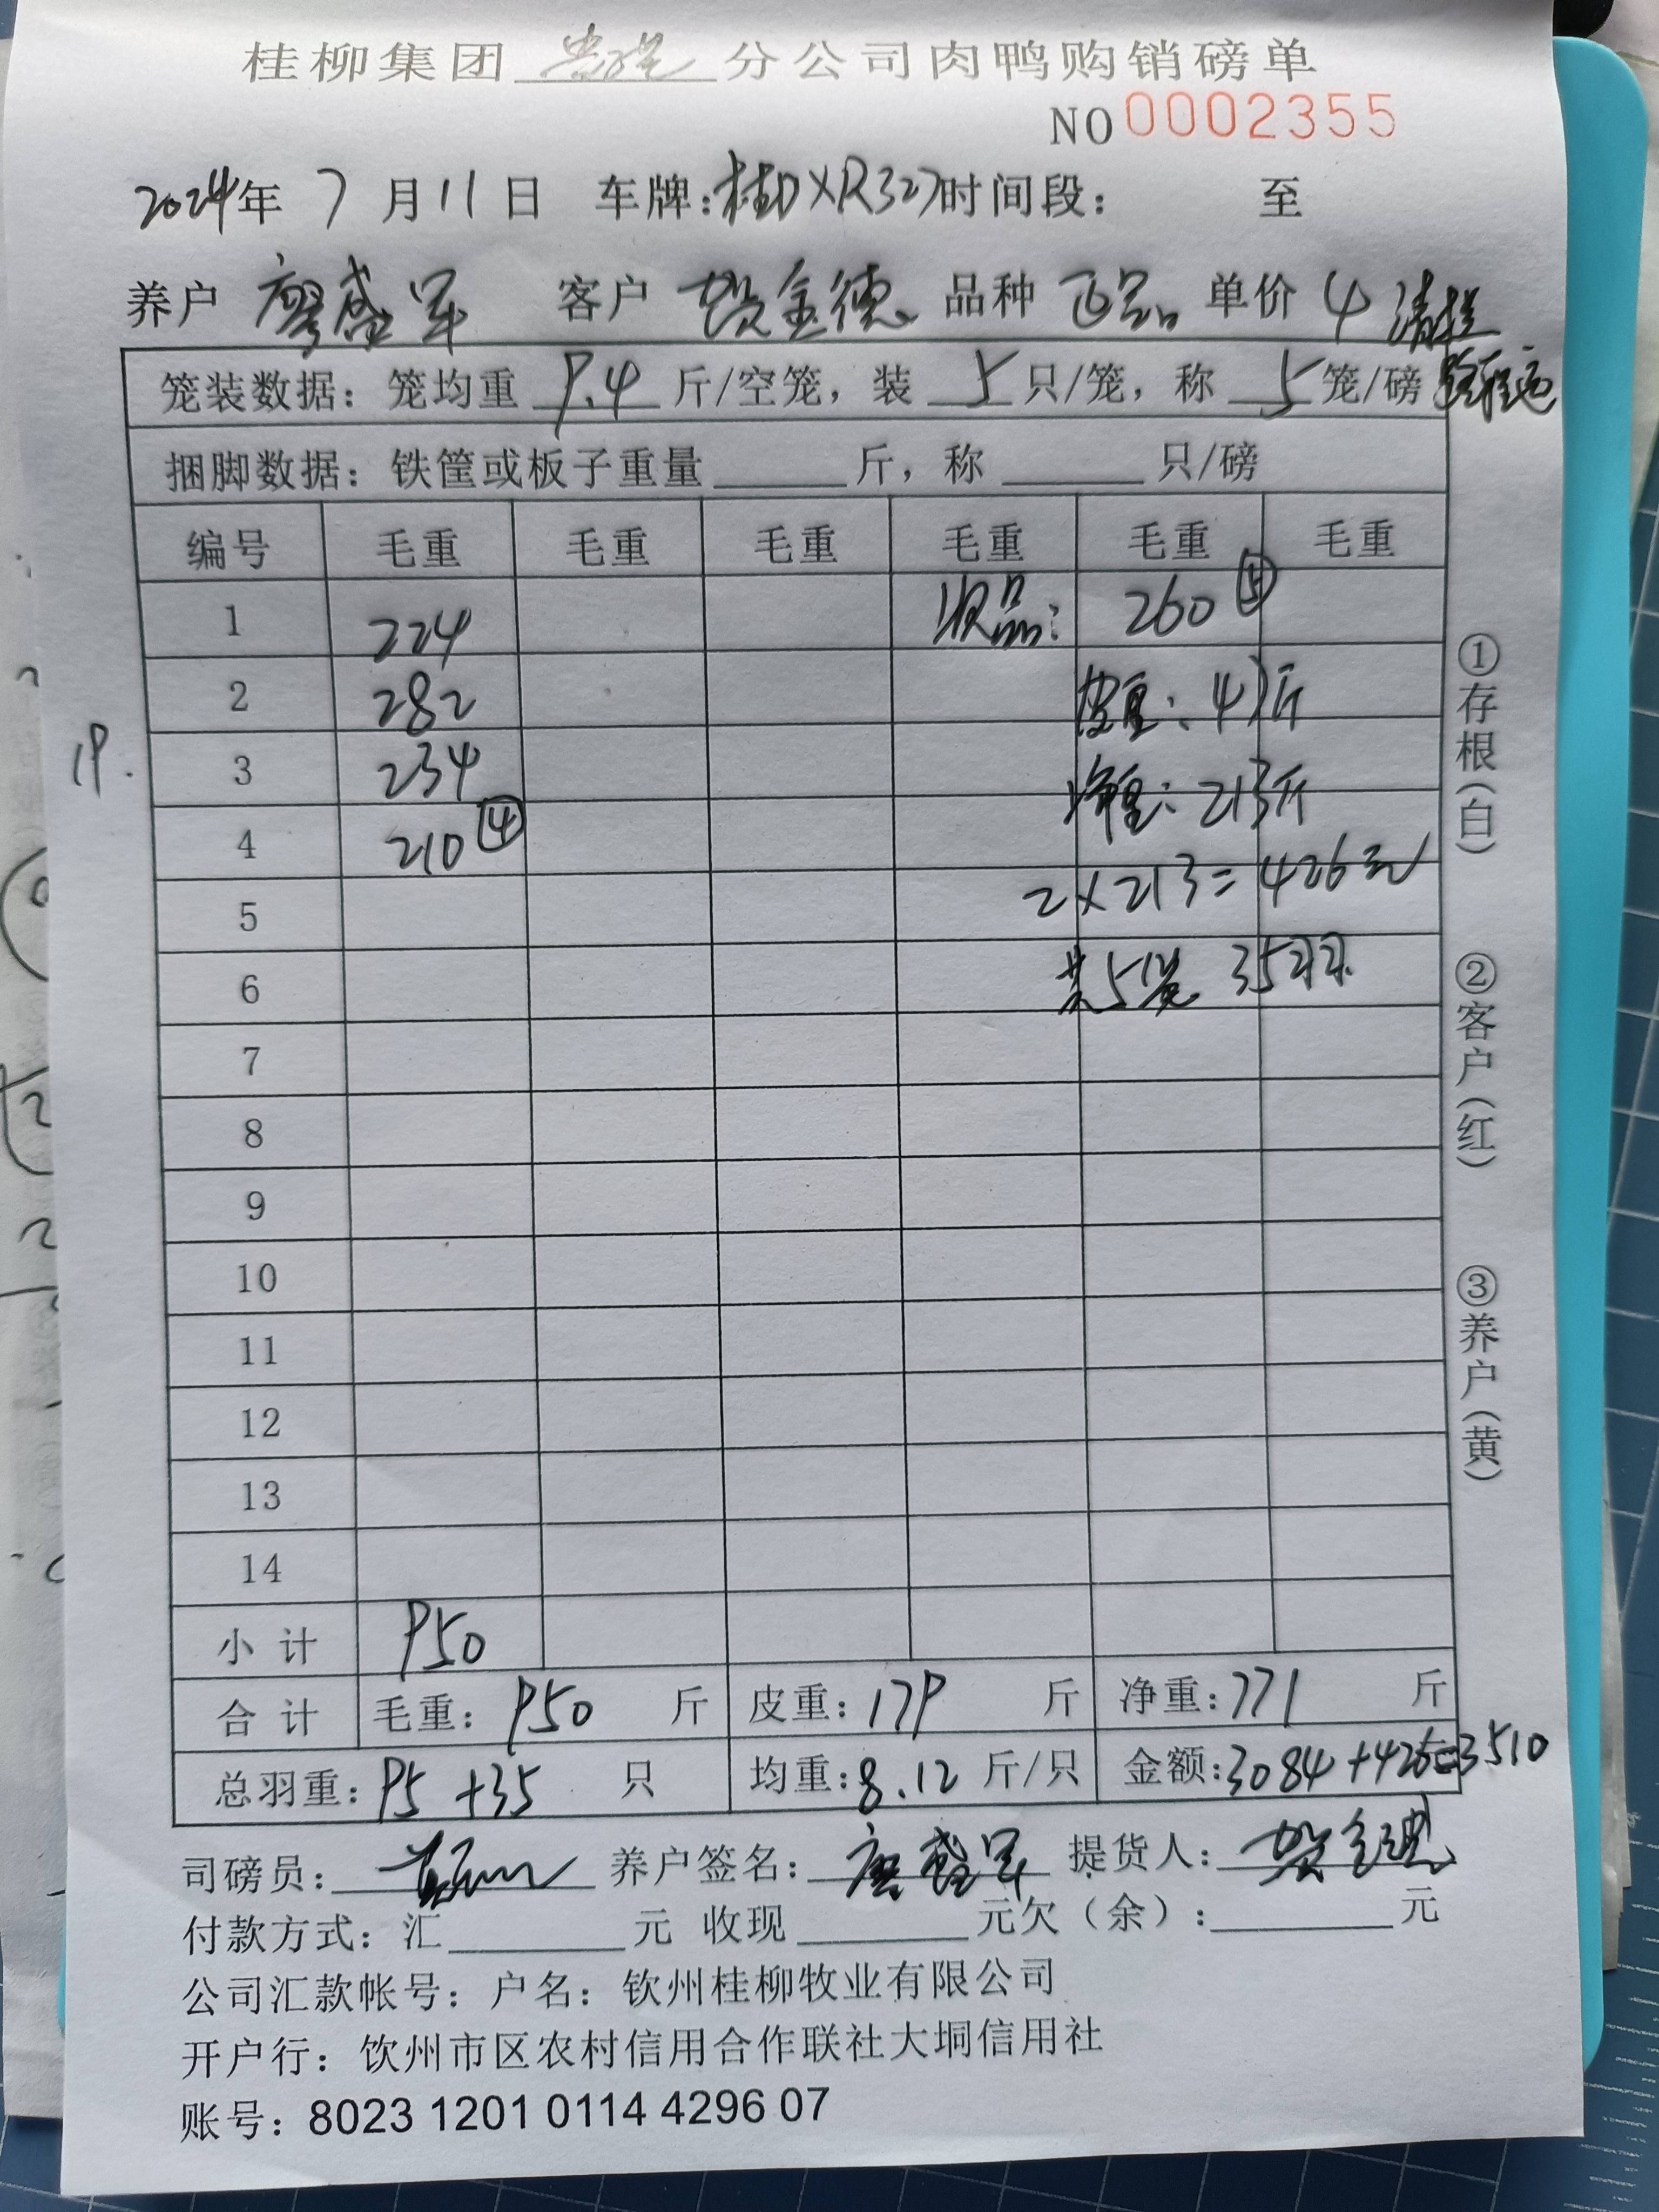 桂柳集团 贵港 分公司肉鸭购销磅单
NO 0002355
2024年 7 月 11 日 车牌:桂DXR327 时间段: 至
养户 廖盛军 客户 贺金德 品种 正品 单价 4 清栏
笼装数据:笼均重 9.4 斤/空笼,装 5 只/笼,称 5 笼/磅
捆脚数据:铁筐或板子重量 斤,称 只/磅
编号 毛重 毛重 毛重 毛重 毛重 毛重
1 224 次品: 260 ⑤
2 282 皮重: 47斤
19.
3 234 净重: 213斤
4 210 ④
2×213=426元
5
6 共5笼 35羽
7
8
9
10
11
12
13
14
小计 950
合计 毛重: 950 斤 皮重: 179 斤 净重: 771 斤
总羽重: 95 +35 只 均重: 8.12 斤/只 金额: 3084+426=3510
司磅员: 养户签名: 廖盛军 提货人: 贺金德
付款方式:汇 元 收现 元欠(余): 元
公司汇款帐号:户名:钦州桂柳牧业有限公司
开户行:钦州市区农村信用合作联社大垌信用社
账号:8023 1201 0114 4296 07
①存根(白)
②客户(红)
③养户(黄)